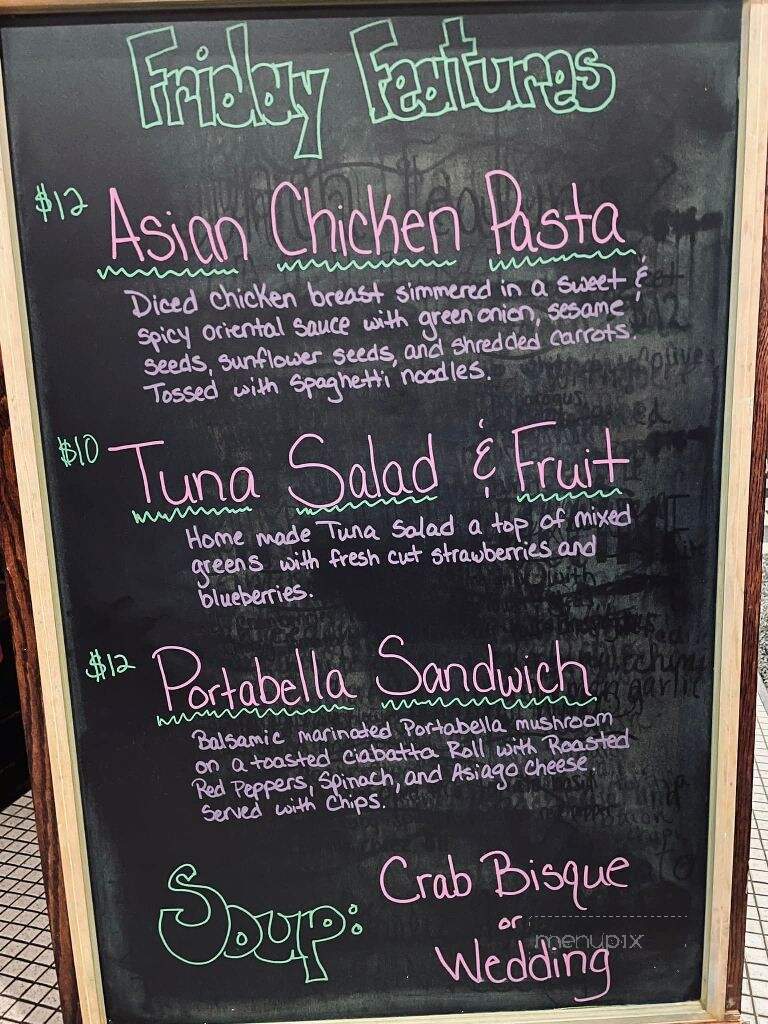 Friday Features
$12 Asian Chicken Pasta
Diced chicken breast simmered in a sweet &
spicy oriental sauce with green onion, sesame
seeds, sunflower seeds, and shredded carrots.
Tossed with spaghetti noodles.
$10 Tuna Salad & Fruit
Home made Tuna Salad a top of mixed
greens with fresh cut strawberries and
blueberries.
$12 Portabella Sandwich
Balsamic marinated Portabella mushroom
on a toasted ciabatta Roll with Roasted
Red Peppers, Spinach, and Asiago Cheese.
Served with Chips.
Soup: Crab Bisque
or
menupix
Wedding